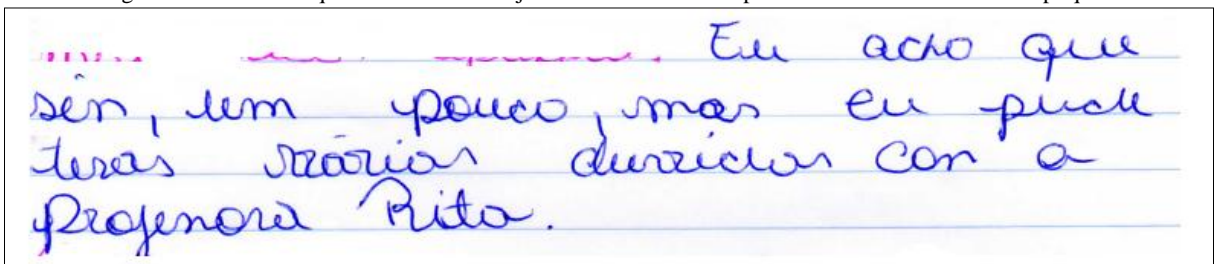 Eu acho que
sin, um pouco, mas eu pude
teras várias duvidas con a
professora Rita.